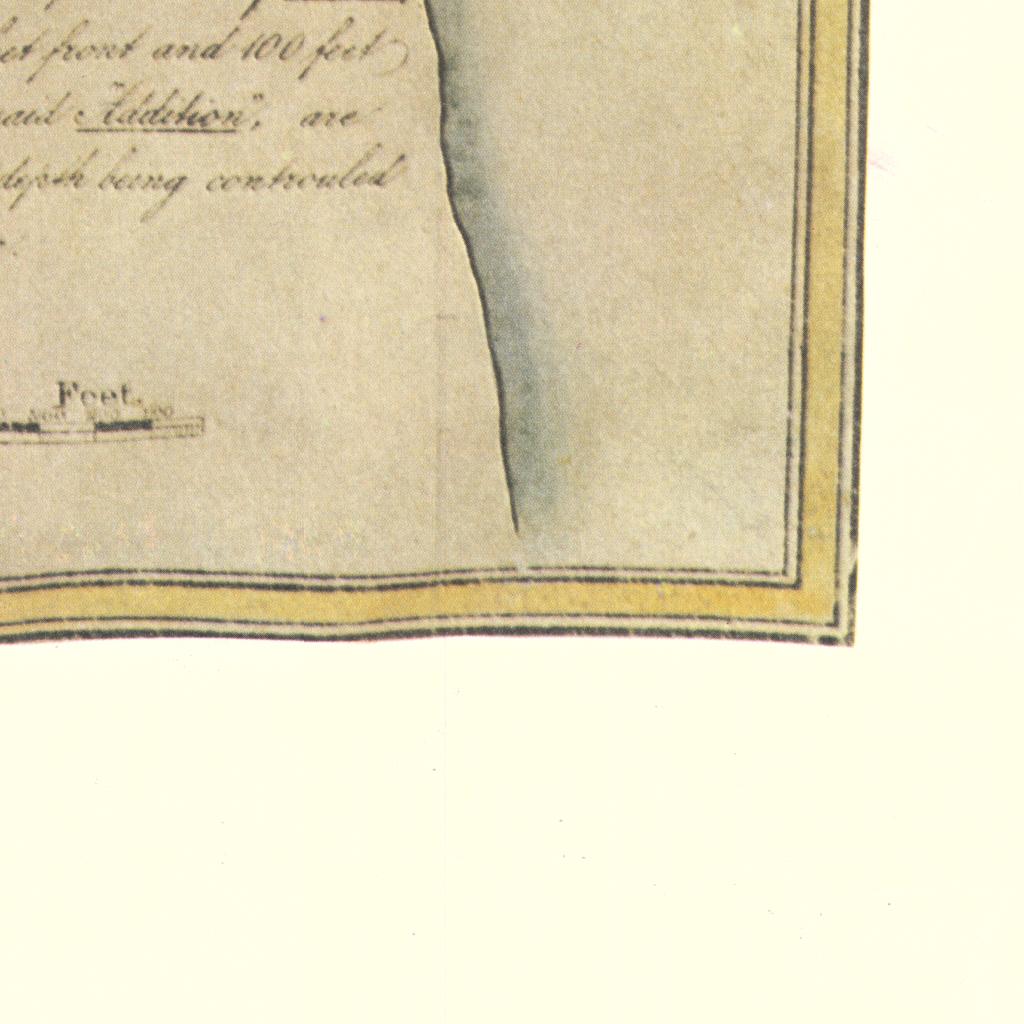 et front and 100 feet
said "Addition", are
depth being controuled
Feet.